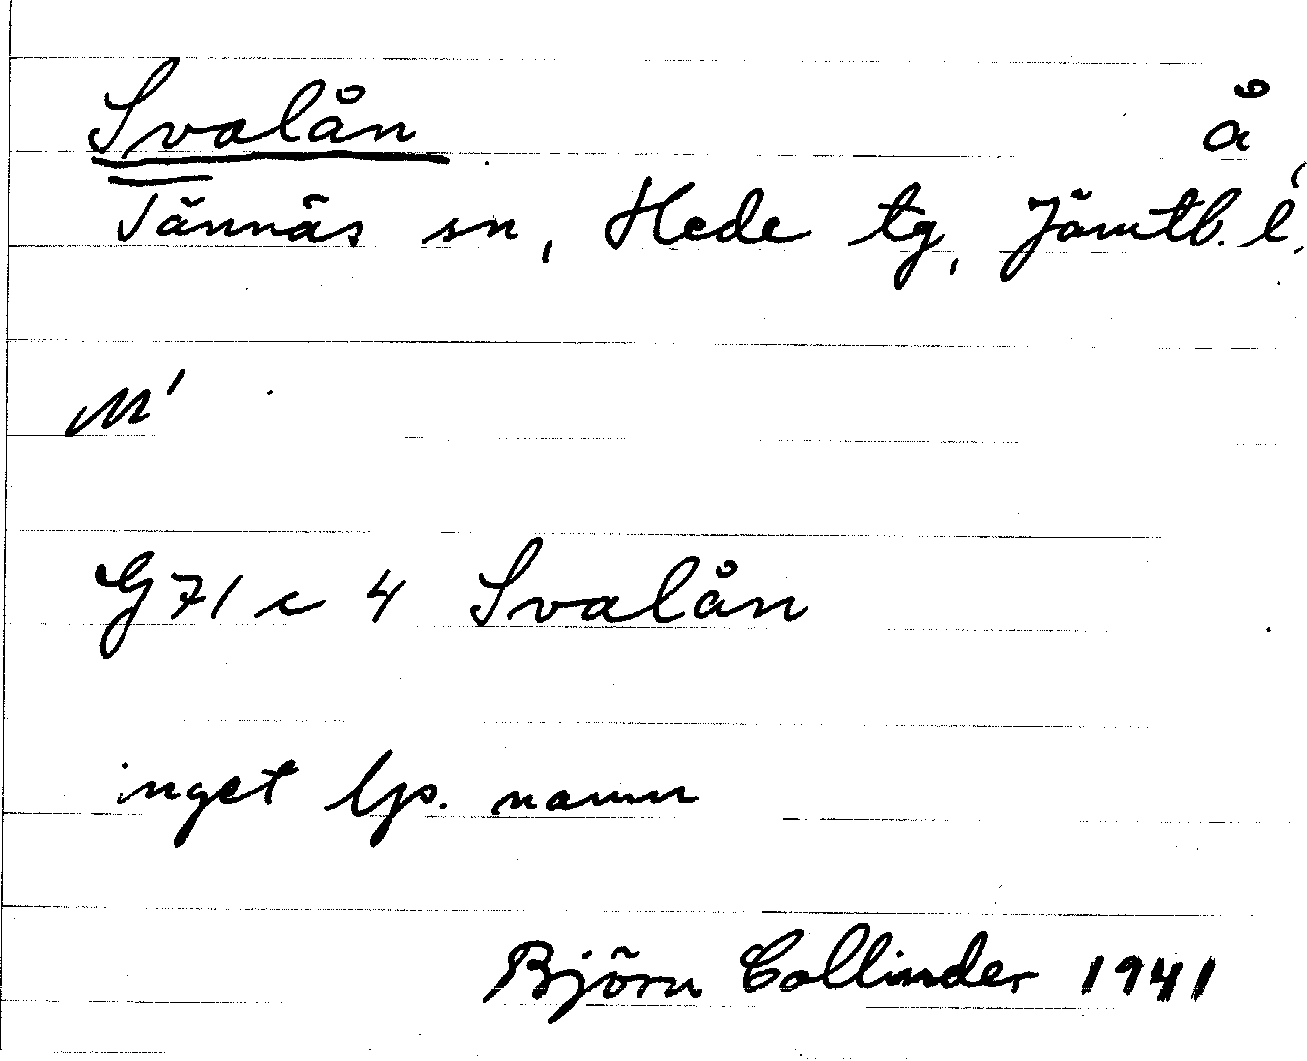 Svalån å
Tännäs sn, Hede tg, Jämtl. l.
M'
G 71 c 4 Svalån
inget lp. namn
Björn Collinder 1941